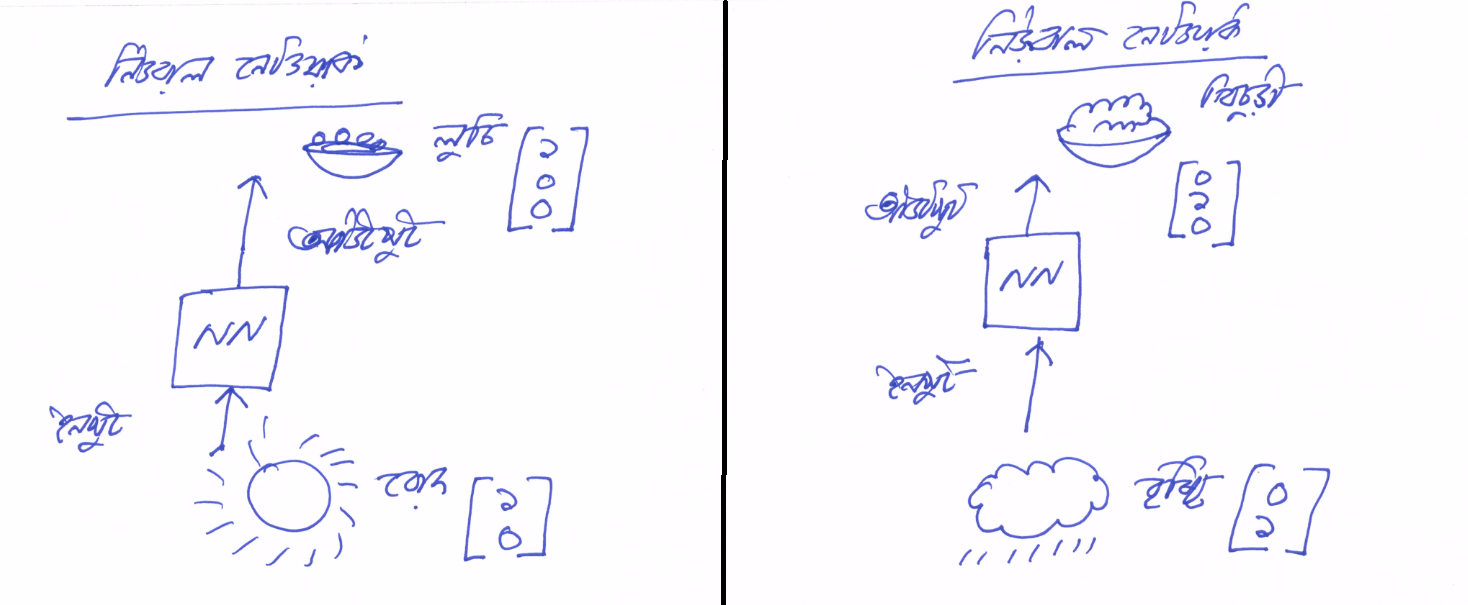 নিউরাল নেটওয়ার্ক
লুচি
[১
০
০]
আউটপুট
NN
ইনপুট
রোদ
[১
০]
নিউরাল নেটওয়ার্ক
খিচুড়ী
[০
১
০]
আউটপুট
NN
ইনপুট
বৃষ্টি
[০
১]